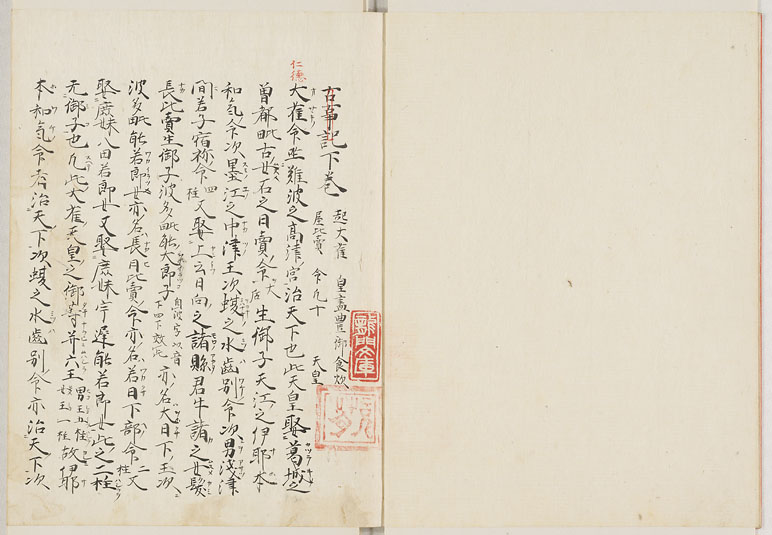 古事記下巻 起大雀 皇盡豊御食炊
屋比賣 命凡十 天皇
仁徳
大雀命坐難波之高津宮治天下也此天皇娶葛城之
曽都毗古女石之日賣命大后生御子大江之伊耶本
和氣命次墨江之中津王次蝮之水齒別命次男淺津
間若子宿祢命四柱又娶上云日向之諸縣君牛諸之女髪
長比賣生御子波多毗能大郎子自波字以音下四下效此亦名大日下王次
波多毗能若郎女亦名長目比賣命亦名若日下部命二柱又
娶庶妹八田若郎女又娶庶妹宇遅能若郎女此之二柱
无御子也凡此大雀天皇之御子等并六王男王五柱女王一柱故伊耶
本和氣命者治天下次蝮之水齒別命亦治天下次
龍門文庫